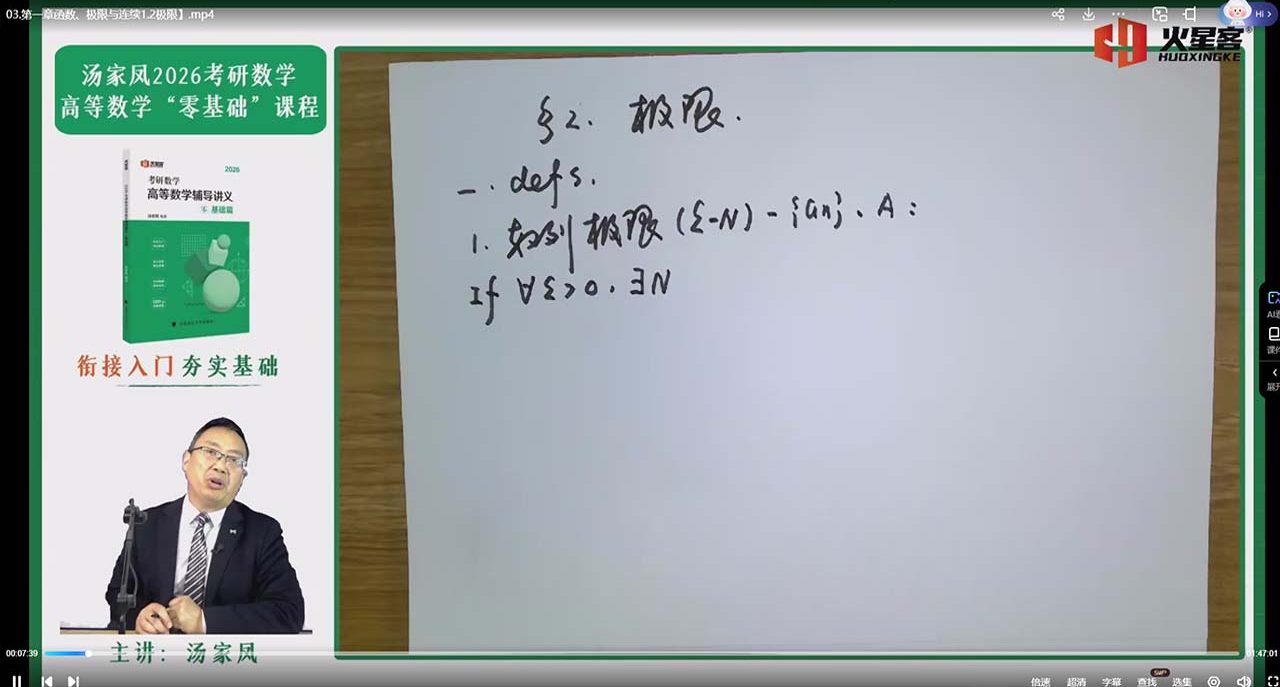 03.第一章函数、极限与连续1.2极限】.mp4
Hi
火星客
HUOXINGKE
汤家凤2026考研数学
高等数学“零基础”课程
火星客
2026
考研数学
高等数学辅导讲义
零基础篇
衔接入门 夯实基础
主讲：汤家凤
§2. 极限.
一. defs.
1. 数列极限 (ε-N) - {an}、A:
If ∀ε>0. ∃N
AI
课件
展开
00:07:39
01:47:01
倍速
超清
字幕
SWP
查找
选集